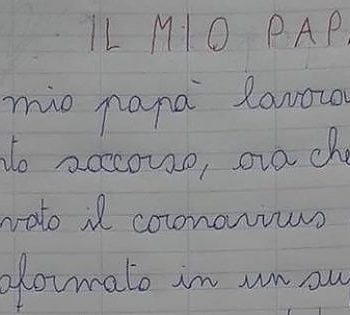 IL MIO PAP
mio papà lavora
nto soccorso, ora che
vato il coronavirus
sformato in un su